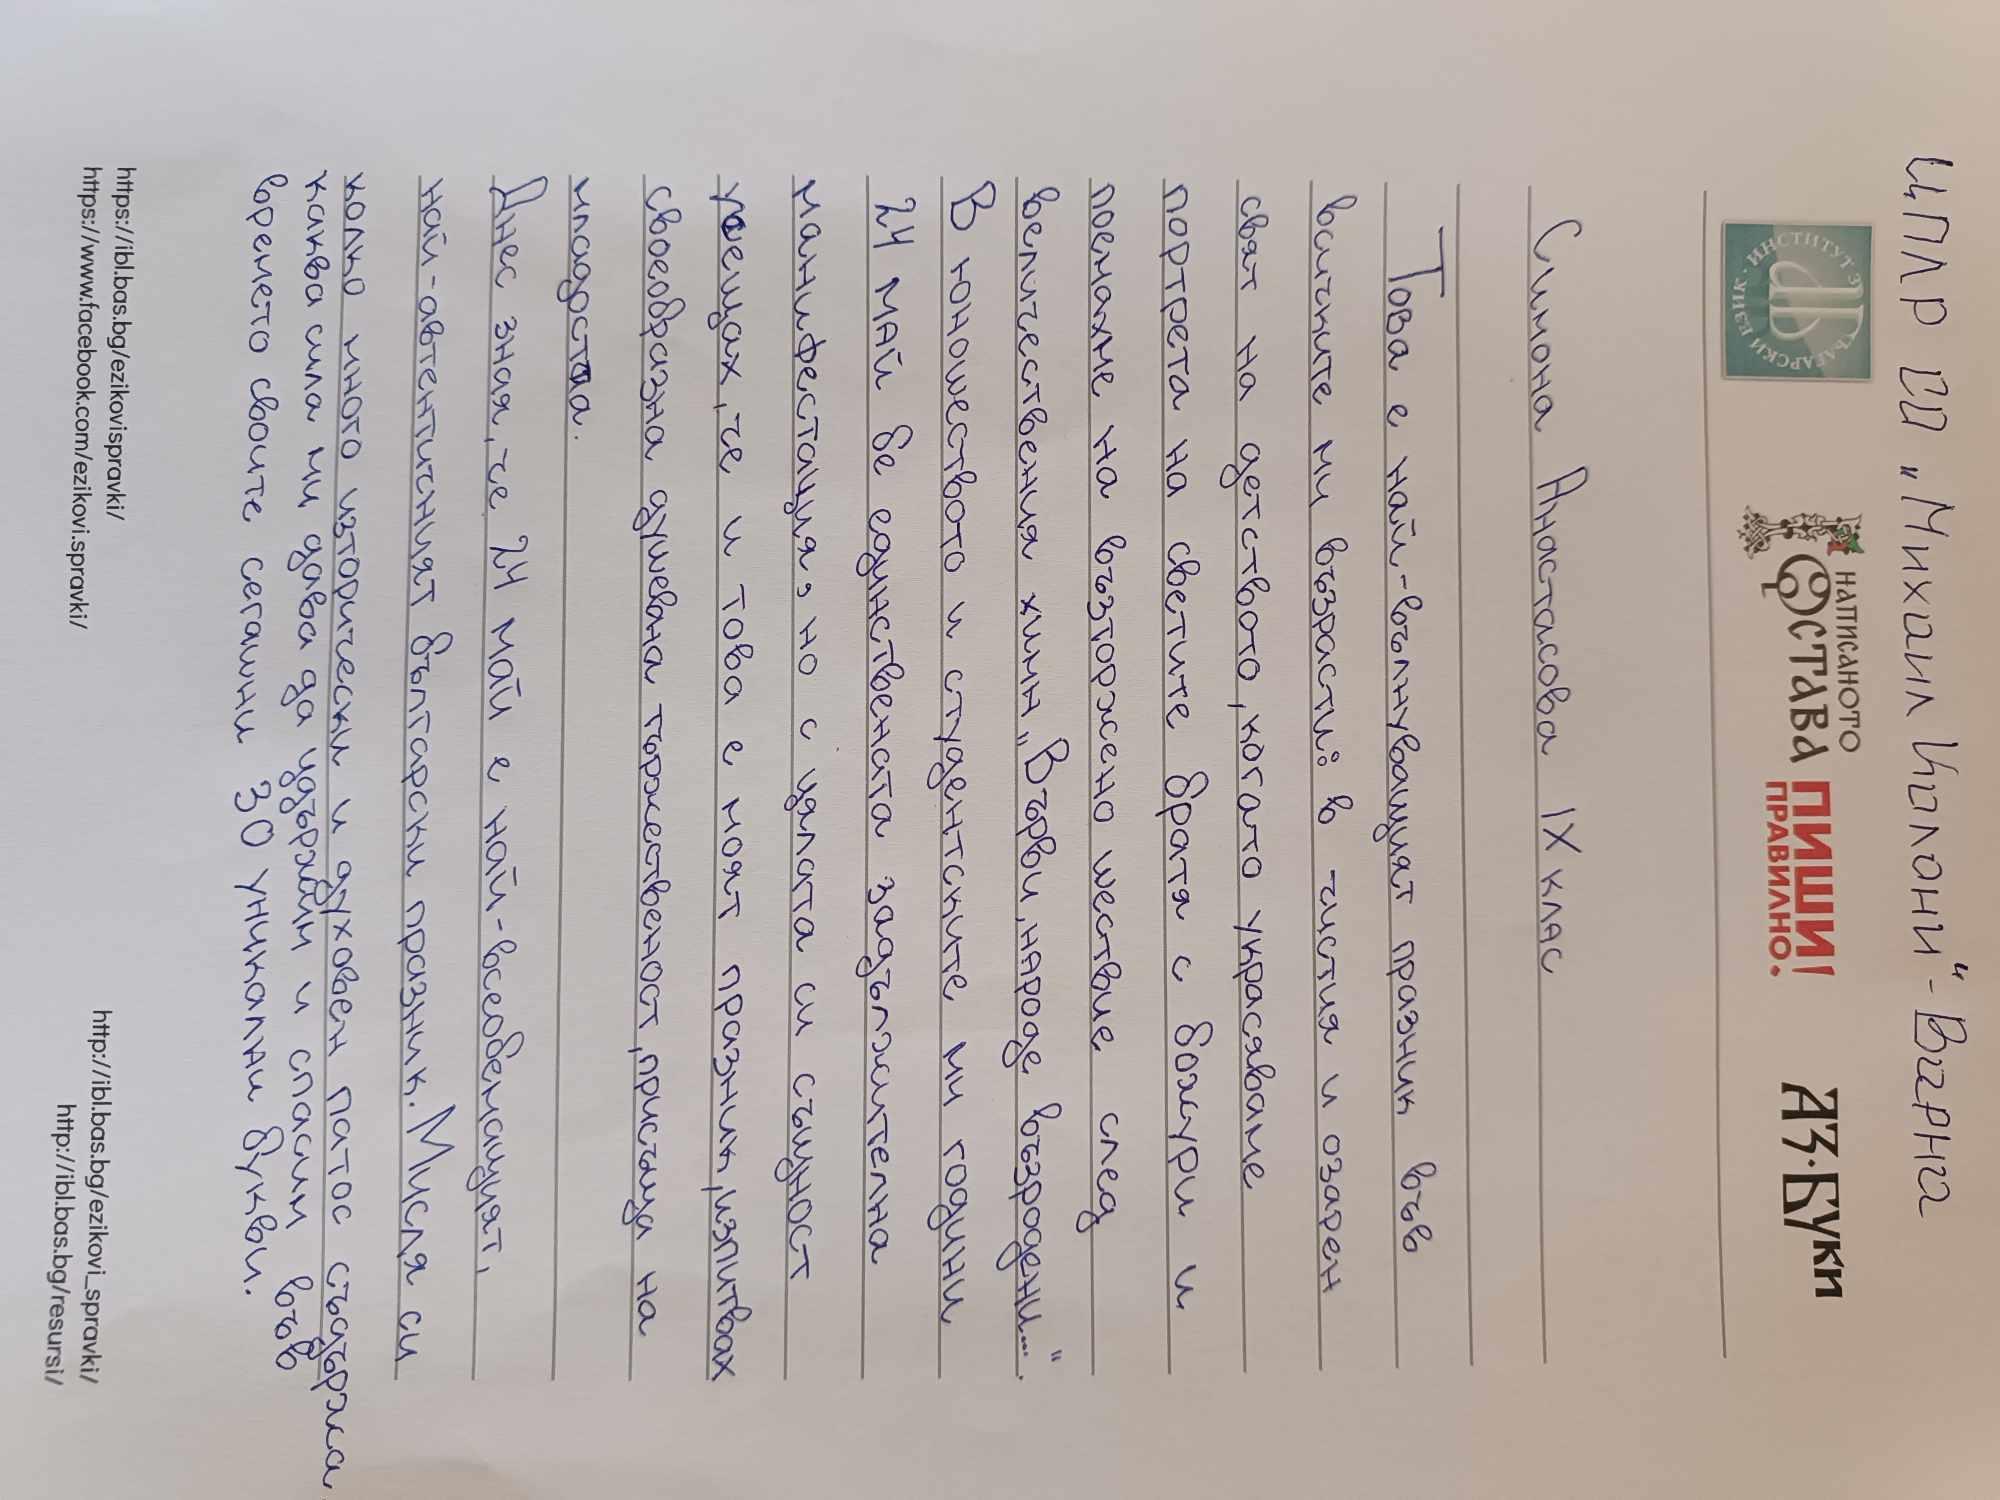 ЦПЛР СП „Михаил Колони“ - Варна
ИНСТИТУТ ЗА БЪЛГАРСКИ ЕЗИК
НАПИСАНОТО
ОСТАВА
ПИШИ!
ПРАВИЛНО.
АЗ·БУКИ
Симона Анастасова IX клас
Това е най-вълнуващият празник във
всичките ми възрасти: в чистия и озарен
свят на детството, когато украсяваме
портрета на светите братя с божури и
поемахме на възторжено шествие след
величествения химн „Върви, народе възродени...“.
В юношеството и студентските ми години
24 май бе единствената задължителна
манифестация, но с цялата си същност
усещах, че и това е моят празник, изпитвах
своеобразна душевна тържественост, присъща на
младостта.
Днес зная, че 24 май е най-всеобемащият,
най-автентичният български празник. Мисля си
колко много исторически и духовен патос съдържа
каква сила ми дава да издържим и спасим във
времето своите сегашни 30 уникални букви.
https://ibl.bas.bg/ezikovispravki/
https://www.facebook.com/ezikovi.spravki/
http://ibl.bas.bg/ezikovi_spravki/
http://ibl.bas.bg/resursi/